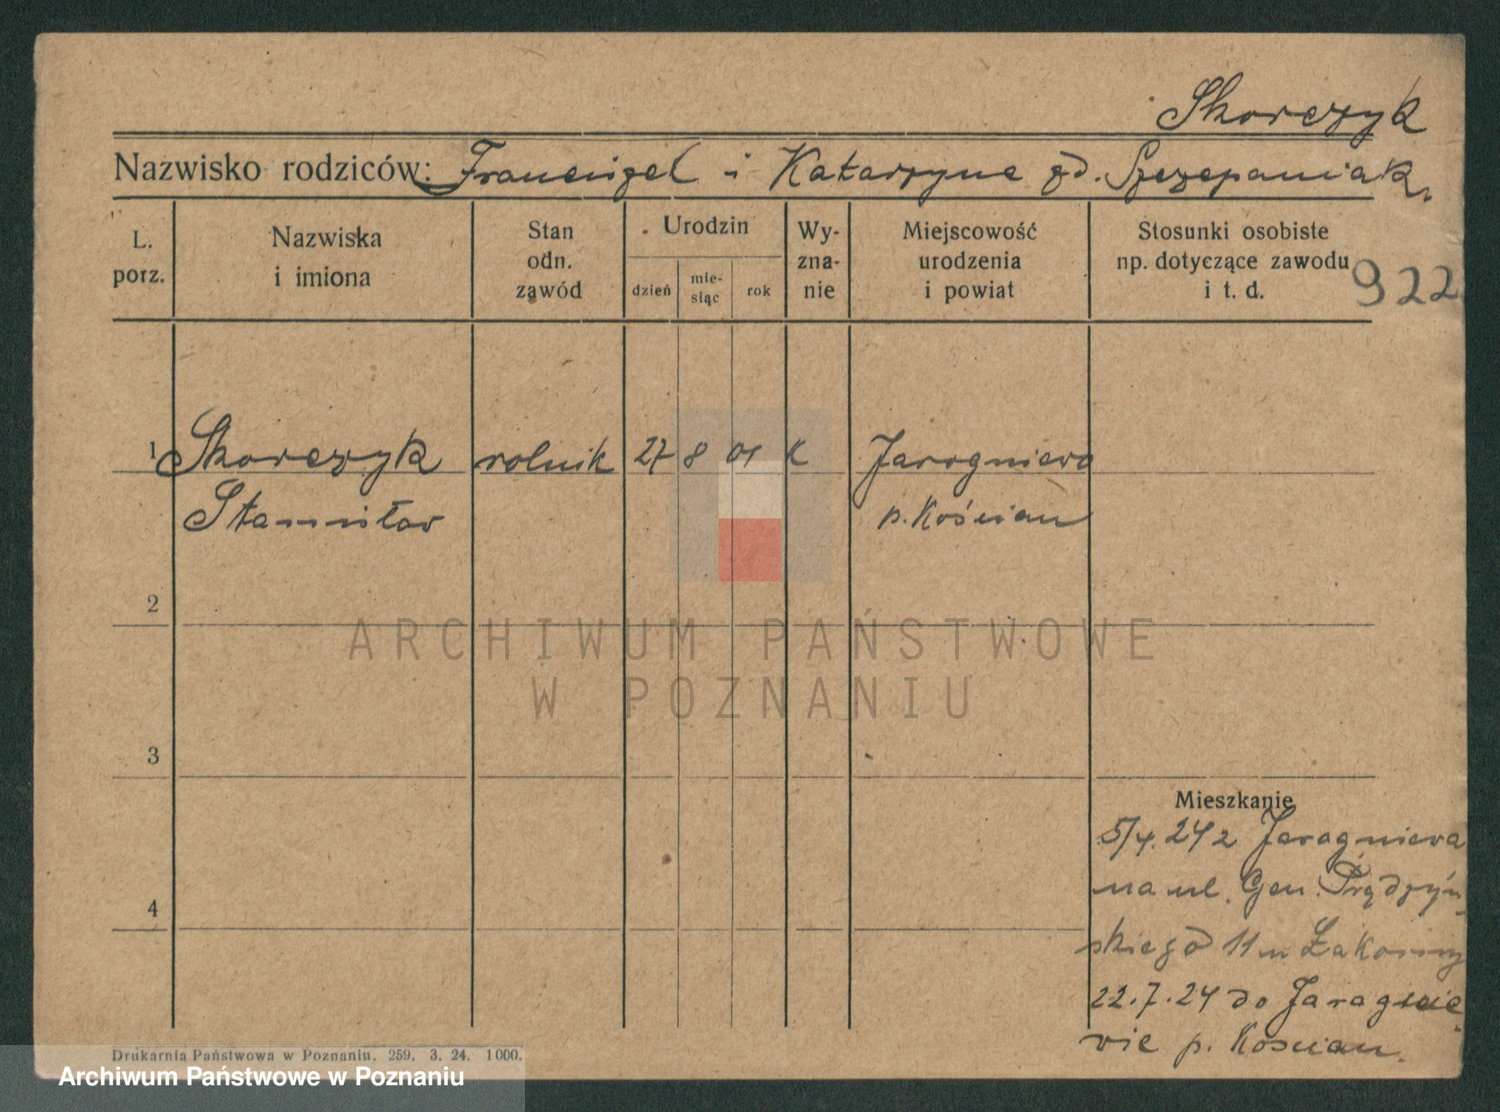 Skorczyk
Nazwisko rodziców: Franciszek i Katarzyna zd. Szczepaniak
L. porz.
Nazwiska i imiona
Stan odn. zawód
Urodzin
dzień
mie- siąc
rok
Wy- zna- nie
Miejscowość urodzenia i powiat
Stosunki osobiste np. dotyczące zawodu i t. d.
922
1 Skorczyk rolnik 27 8 01 K Jarogniewo
Stanisław p. Kościan
2
ARCHIWUM PAŃSTWOWE
W POZNANIU
3
Mieszkanie
5/4. 24 z Jarogniewa
na ul. Gen. Prądzyń-
skiego 11 m Łakomy
22.7.24 do Jarognie-
wie p. Kościan.
4
Drukarnia Państwowa w Poznaniu. 259. 3. 24. 1000.
Archiwum Państwowe w Poznaniu